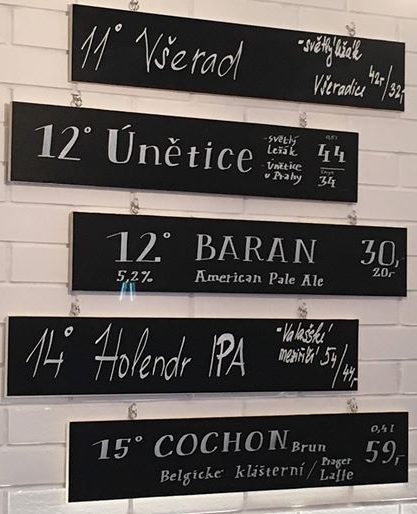 11° Všerad
-světlý ležák
Všeradice 42,-/32,-
12° Únětice
-světlý
Ležák
-Únětice
u Prahy
0,5l
44
34
12° BARAN 30,-
5,2% American Pale Ale 20,-
14° Holendr IPA
-Valašské
meziříčí 54/44,-
15° COCHON Brun
0,4l
59,-
Belgické klášterní / Prager
Laffe